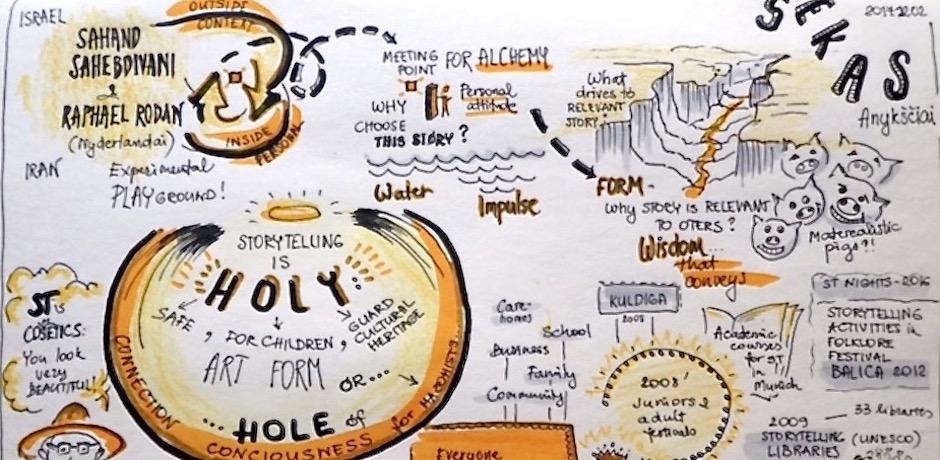 ISRAEL
SAHAND
SAHEBDIVANI
&
RAPHAEL RODAN
(Nyderlandai)
IRAN
Experimental
PLAYGROUND!
OUTSIDE
CONTEXT
INSIDE
PERSONAL
MEETING
POINT
FOR ALCHEMY
Personal
attitude
WHY
CHOOSE
THIS STORY?
Water
Impulse
What
drives to
RELEVANT
STORY?
FORM-
Why STORY IS RELEVANT
TO OTERS?
Wisdom...
that
conveys
SEKAS
2017.12.02
Anykščiai
Materealistic
pigs?!
STORYTELLING
IS
HOLY:
SAFE,
FOR CHILDREN,
GUARD
CULTURAL
HERITAGE
ART FORM
OR...
...HOLE of
CONNECTION
CONCIOUSNESS for
ST is
COSETICS:
You look
very
BEAUTIFUL!
Care-
homes
School
Business
Family
Community
Everyone
KULDIGA
2008
2008'
Juniors &
adult
festivals
Academic
courses
for ST
in
Munich
ST NIGHTS-2016
STORYTELLING
ACTIVITIES in
FOLKLORE
FESTIVAL
BALICA 2012
2009
— 33 libraries
STORYTELLING
LIBRARIES
(UNESCO)